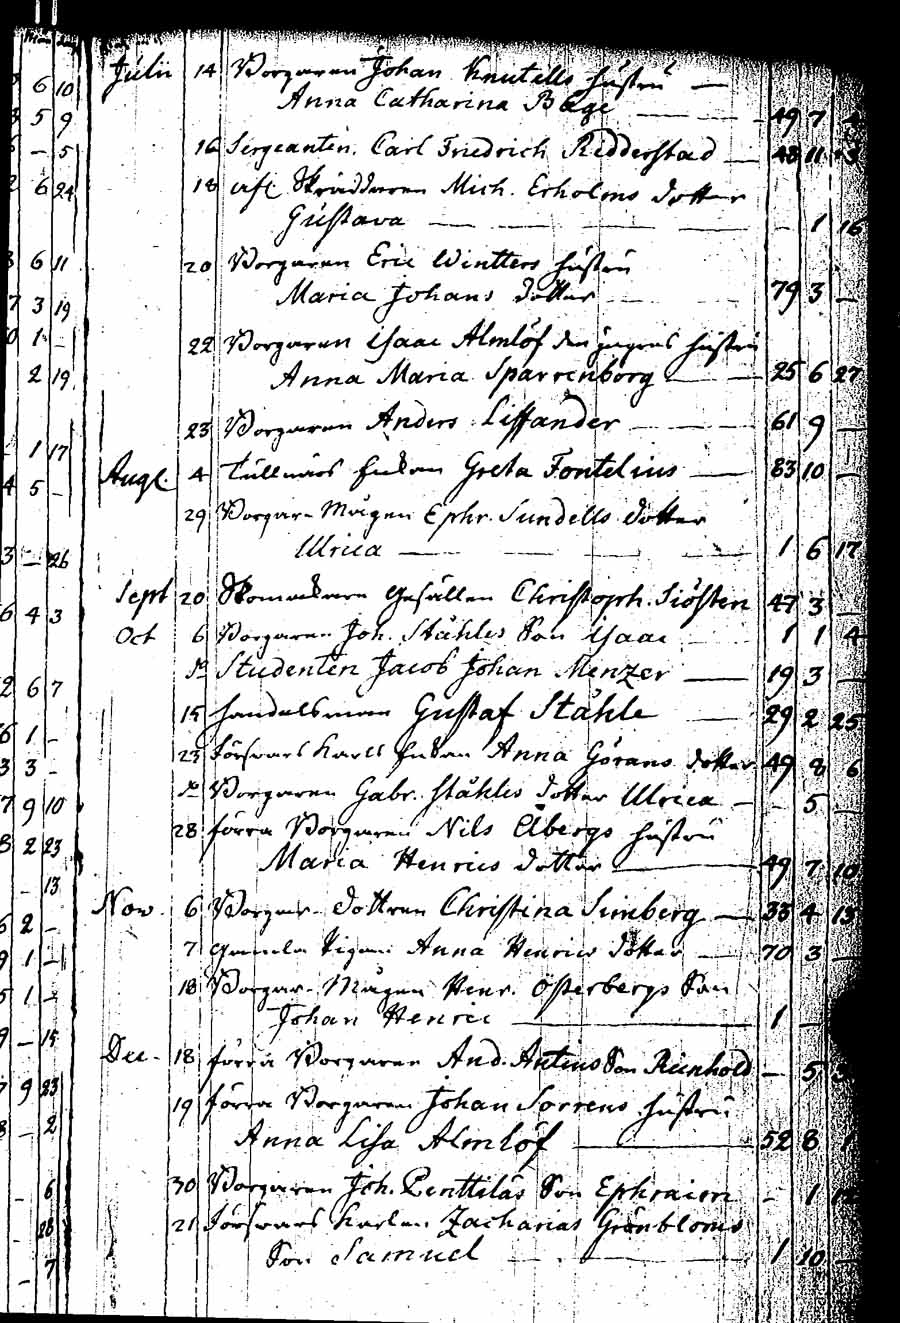 6 10 Julii 14 Borgaren Johan Knutells hustru —
5 9 Anna Catharina Båge — 49 7 4
— 5 16 Sergeanten. Carl Friedrich Ridderstad — 48 11 13
6 24 18 afl Skräddaren Mich. Erholms dotter
Gustava — - 1 16
6 11 20 Borgaren Eric Wintters hustru
3 19 Maria Johans dotter — 79 3 —
1 - 22 Borgaren Isaac Almlöf den yngres hustru
2 19 Anna Maria Sparrenborg — 25 6 27
23 Borgaren Anders Liffander — 61 9 —
1 17 Augt. 4 Tullnärs Enkan Greta Fontelius — 83 10 —
5 - 29 Borgare Mågen Ephr. Sundells dotter
— 26 Ulrica — 1 6 17
Sept 20 Skomakare Gesällen Christoph. Siösten 47 3 —
4 3 Oct 6 Borgaren Joh. Ståhles Son Isaac 1 1 4
do Studenten Jacob Johan Menzer — 19 3 —
6 7 15 Handelsman Gustaf Ståhle — 29 2 25
1 - 23 Försvars Karls Enkan Anna Görans dotter 49 8 6
3 - do Borgaren Gabr. Ståhles dotter Ulrica — - 5 —
9 10 28 förra Borgaren Nils Åbergs hustru
2 23 Maria Henrics dotter — 49 7 10
- 13 Nov. 6 Borgar dottren Christina Simberg — 33 4 13
2 - 7 Gamla Pigan Anna Henrics dotter — 70 3 —
1 - 18 Borgar Mågen Henr. Österbergs Son
1 - Johan Henric — 1 —
— 15 Dec. 18 förra Borgaren And. Antins Son Reinhold — 5
9 23 19 förra Borgaren Johan Sorrens hustru
- 2 Anna Lisa Almlöf — 52 8 1
- 6 30 Borgaren Joh. Penttiläs Son Ephraim - 1
28 21 Försvars Karlen Zacharias Grönbloms
- 7 Son Samuel — 1 10 —